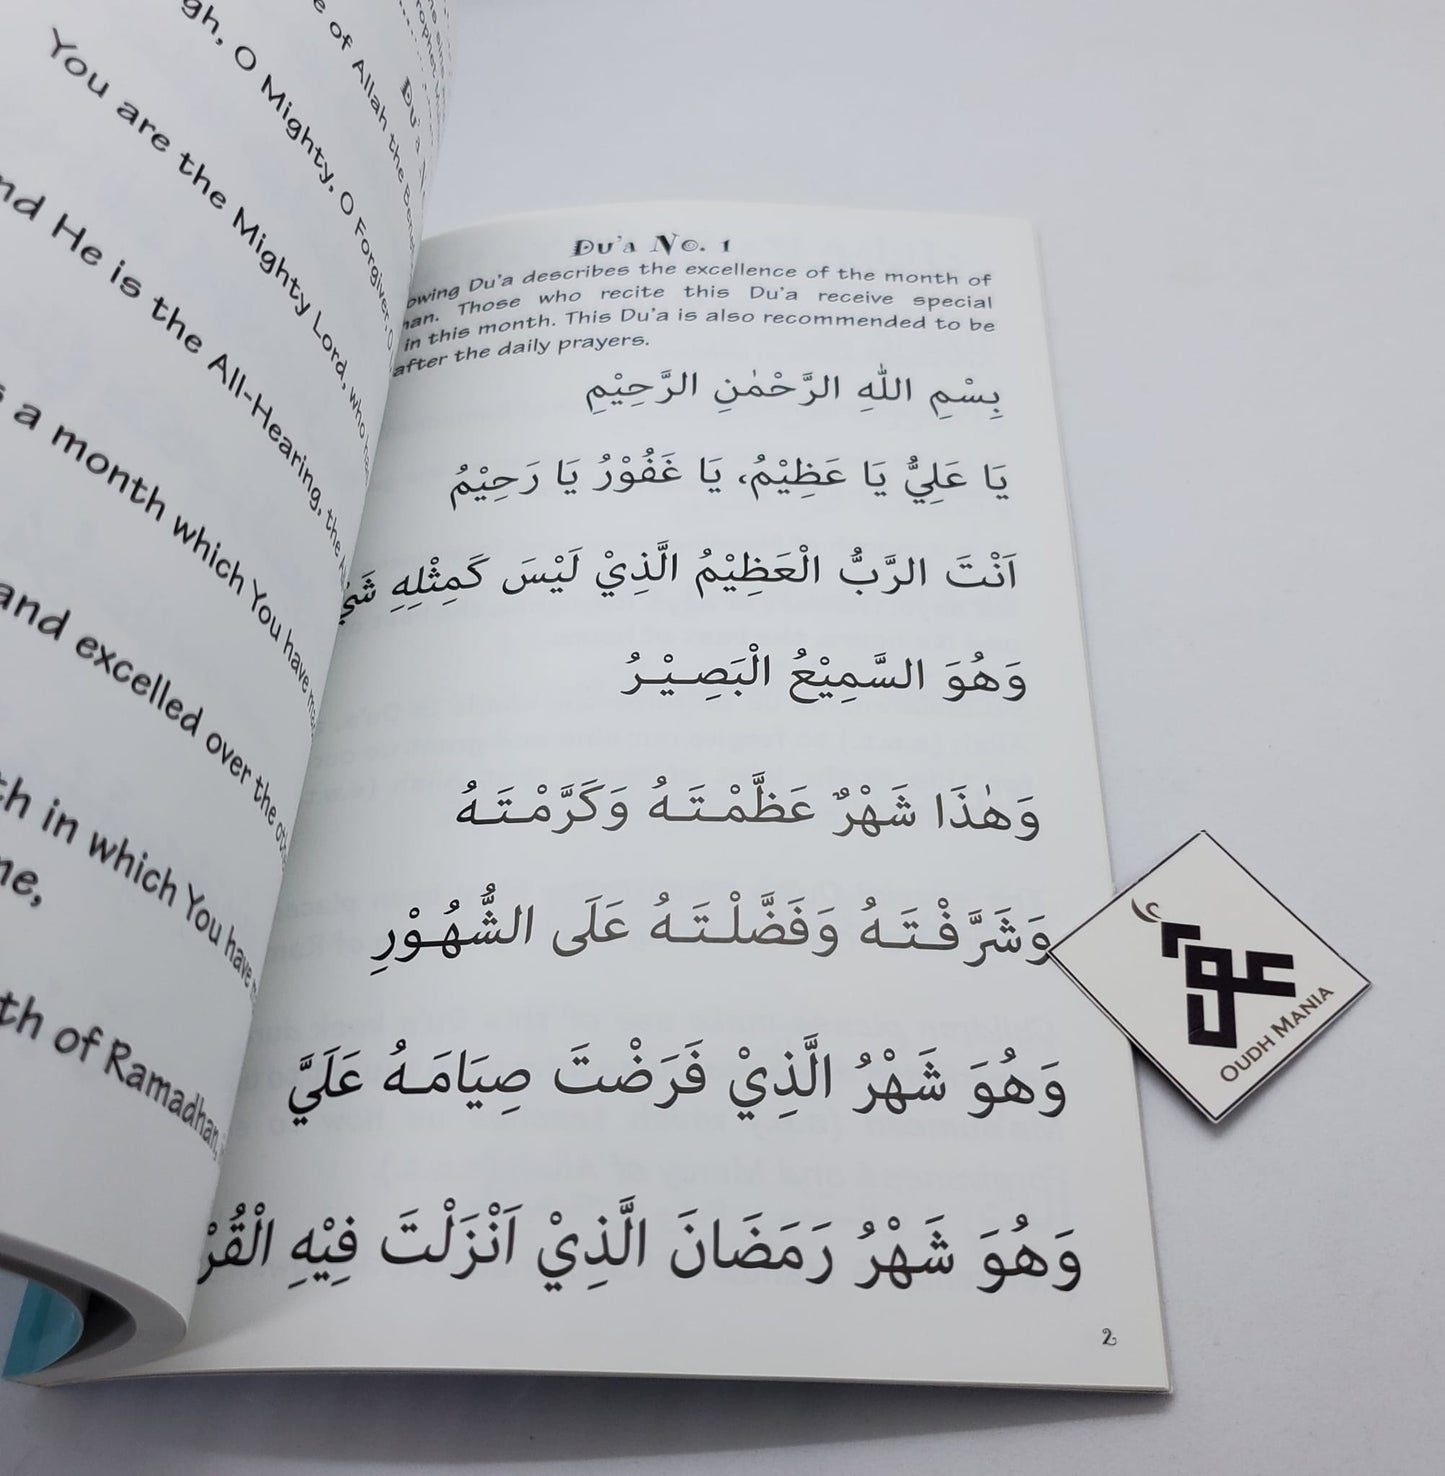 of Allah the
gh, O Mighty, O Forgiver, O
You are the Mighty Lord, who
nd He is the All-Hearing, the
a month which You have
and excelled over the
th in which You have
me,
th of Ramadhan,
Du'a No. 1
owing Du'a describes the excellence of the month of
an. Those who recite this Du'a receive special
in this month. This Du'a is also recommended to be
after the daily prayers.
بِسْمِ اللّٰهِ الرَّحْمٰنِ الرَّحِيْمِ
يَا عَلِيُّ يَا عَظِيْمُ، يَا غَفُوْرُ يَا رَحِيْمُ
اَنْتَ الرَّبُّ الْعَظِيْمُ الَّذِيْ لَيْسَ كَمِثْلِهِ
وَهُوَ السَّمِيْعُ الْبَصِيْرُ
وَهٰذَا شَهْرٌ عَظَّمْتَهُ وَكَرَّمْتَهُ
وَشَرَّفْتَهُ وَفَضَّلْتَهُ عَلَى الشُّهُوْرِ
وَهُوَ شَهْرُ الَّذِيْ فَرَضْتَ صِيَامَهُ عَلَيَّ
وَهُوَ شَهْرُ رَمَضَانَ الَّذِيْ اَنْزَلْتَ فِيْهِ الْقُرْ
2
عود
OUDH MANIA